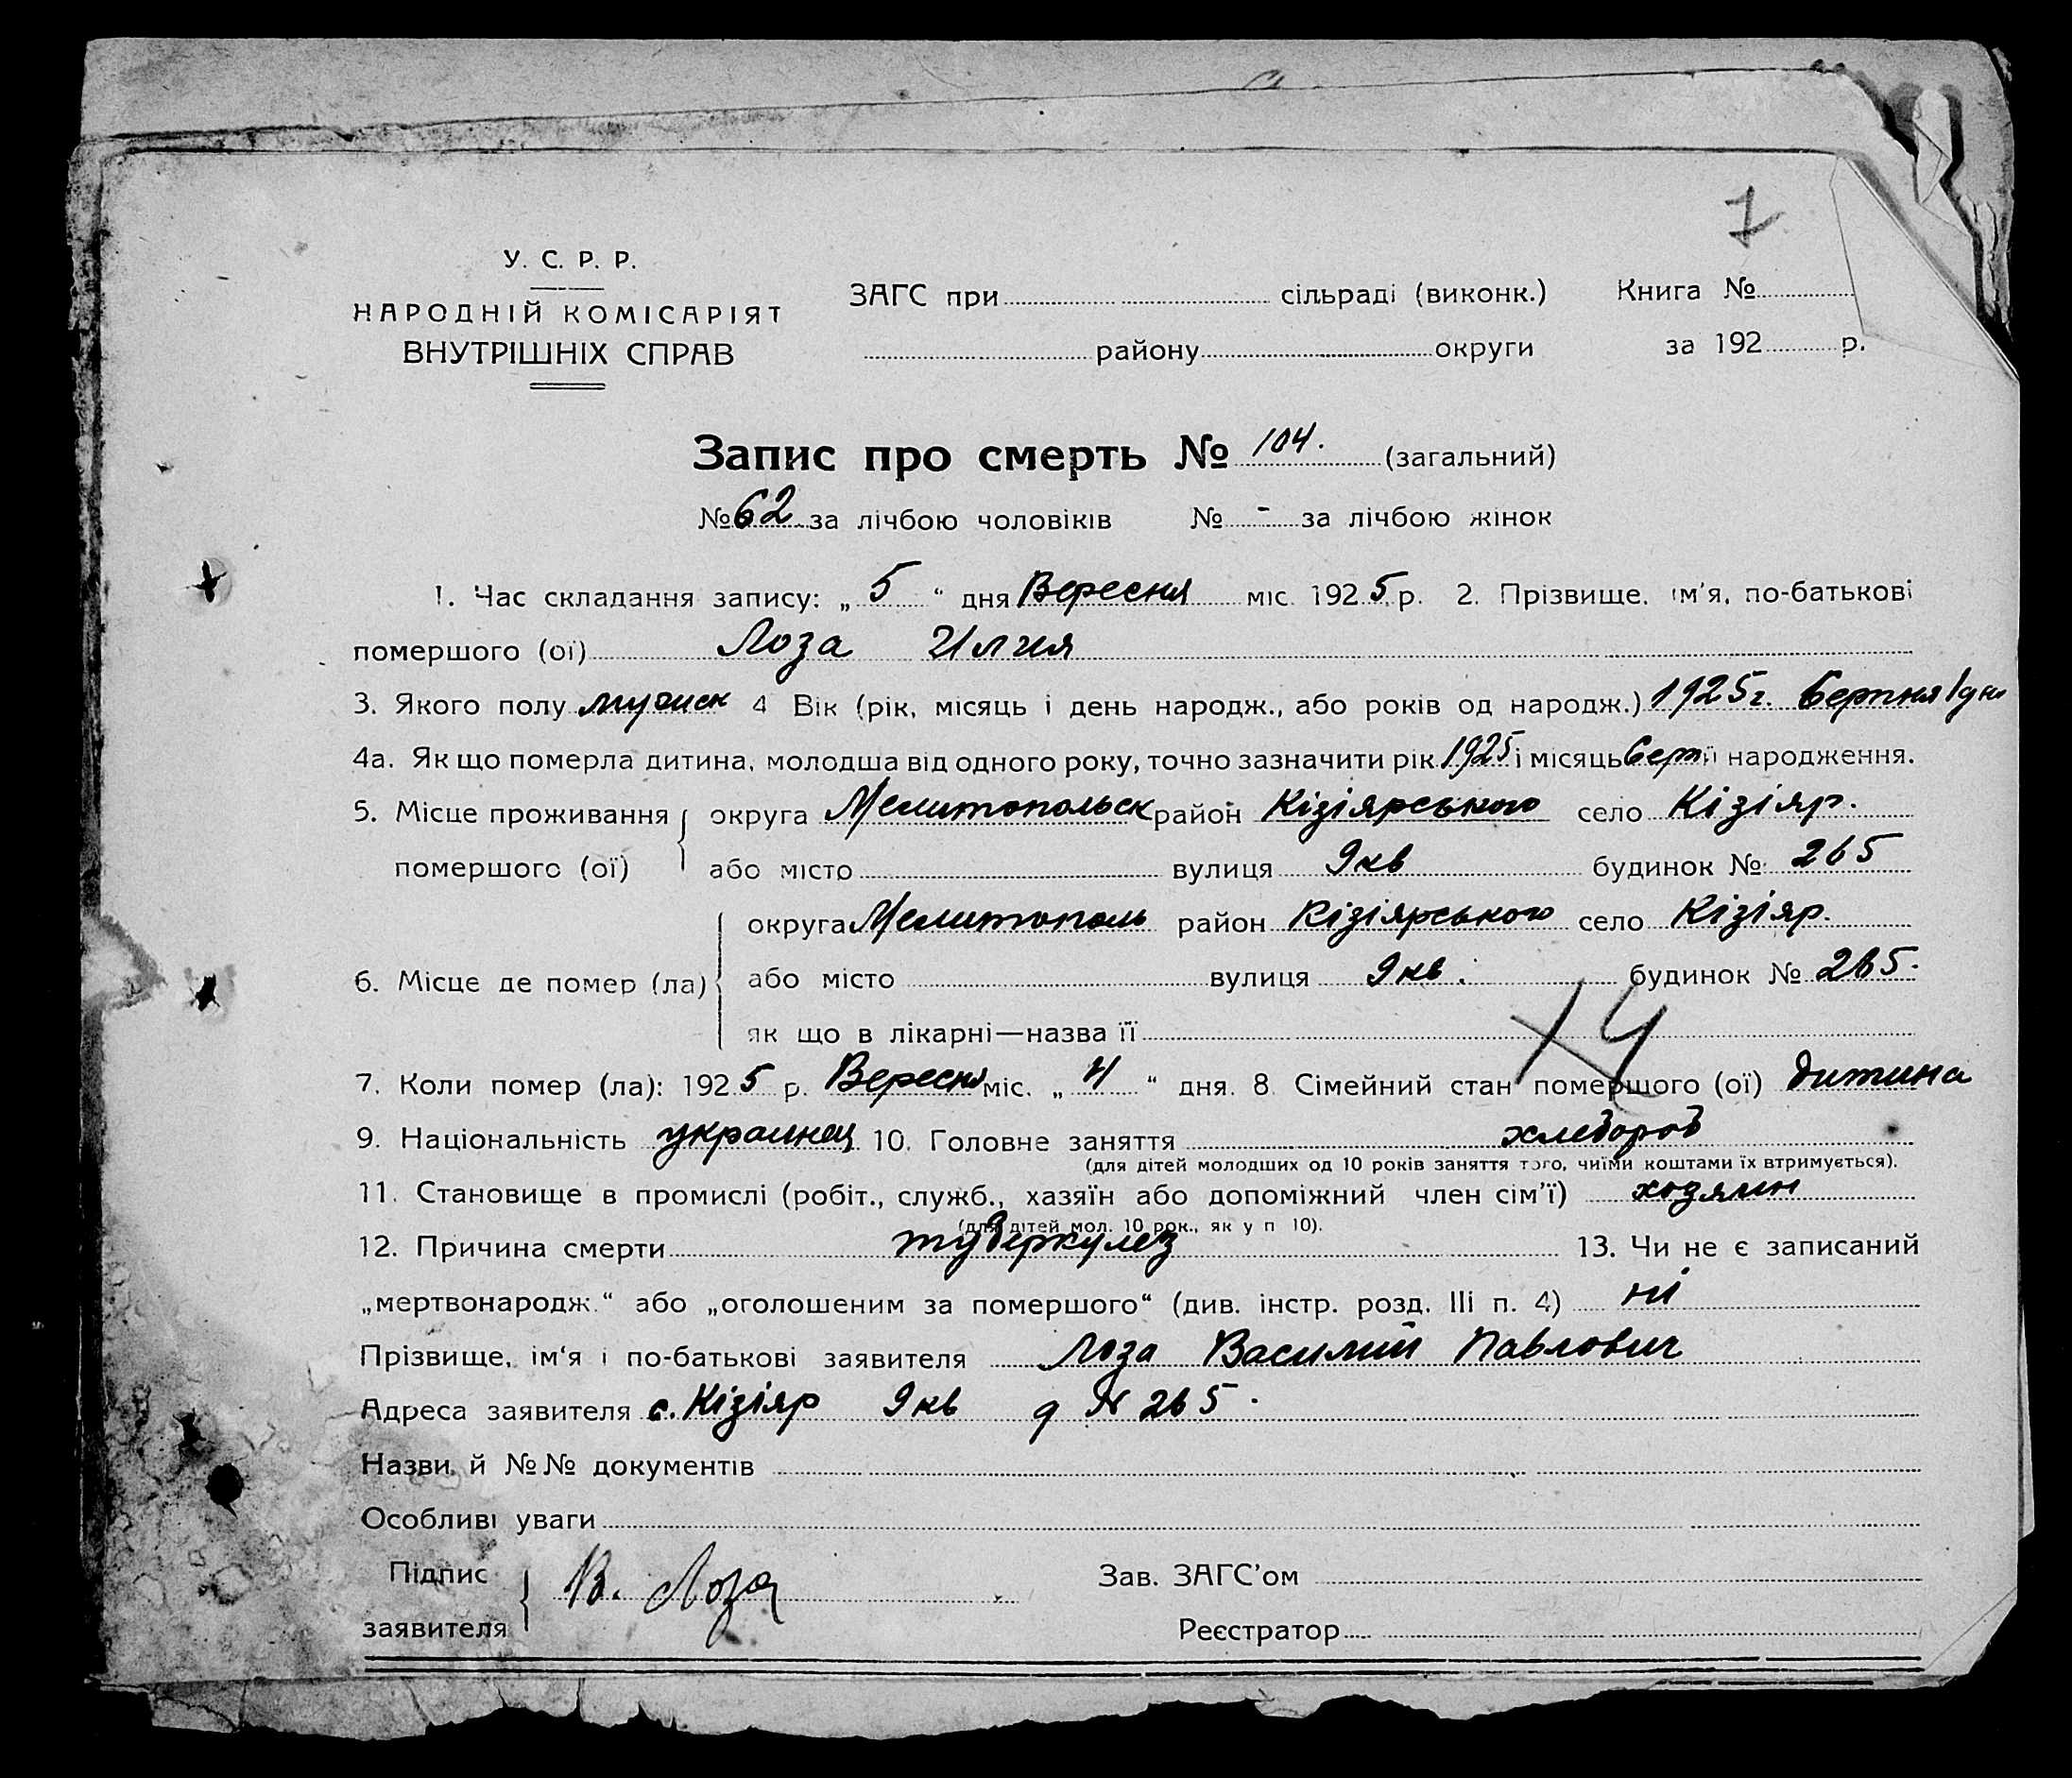 7
У. С. Р. Р.
НАРОДНІЙ КОМІСАРІЯТ
ВНУТРІШНІХ СПРАВ
ЗАГС при сільраді (виконк.) Книга №
району округи за 192 р.
Запис про смерть № 104. (загальний)
№ 62 за лічбою чоловіків № - за лічбою жінок
1. Час складання запису: „ 5 “ дня Вересня міс. 1925 р. 2. Прізвище, ім'я, по-батькові
помершого (ої) Лоза Илия
3. Якого полу мужиск 4 Вік (рік, місяць і день народж., або років од народж.) 1925 г. Серпня 1 дня
4а. Як що померла дитина, молодша від одного року, точно зазначити рік 1925 і місяць Серп її народження.
5. Місце проживання округа Мелитопольск район Кізіярського село Кізіяр.
помершого (ої) або місто вулиця 9 кв будинок № 265
округа Мелитополь район Кізіярського село Кізіяр.
6. Місце де помер (ла) або місто вулиця 9 кв. будинок № 265.
як що в лікарні—назва її
Х 4
7. Коли помер (ла): 1925 р. Вересня міс. „ 4 “ дня. 8. Сімейний стан помершого (ої) дитина
9. Національність украинец 10. Головне заняття хлебороб
(для дітей молодших од 10 років заняття того, чиїми коштами їх втримується).
11. Становище в промислі (робіт., служб., хазяїн або допоміжний член сім'ї) хозяин
(для дітей мол. 10 рок., як у п 10).
12. Причина смерти туберкулез 13. Чи не є записаний
„мертвонародж.“ або „оголошеним за помершого“ (див. інстр. розд. III п. 4) ні
Прізвище, ім'я і по-батькові заявителя Лоза Василий Павлович
Адреса заявителя с. Кізіяр 9 кв д № 265.
Назви й №№ документів
Особливі уваги
Підпис В. Лоза Зав. ЗАГС'ом
заявителя Реєстратор